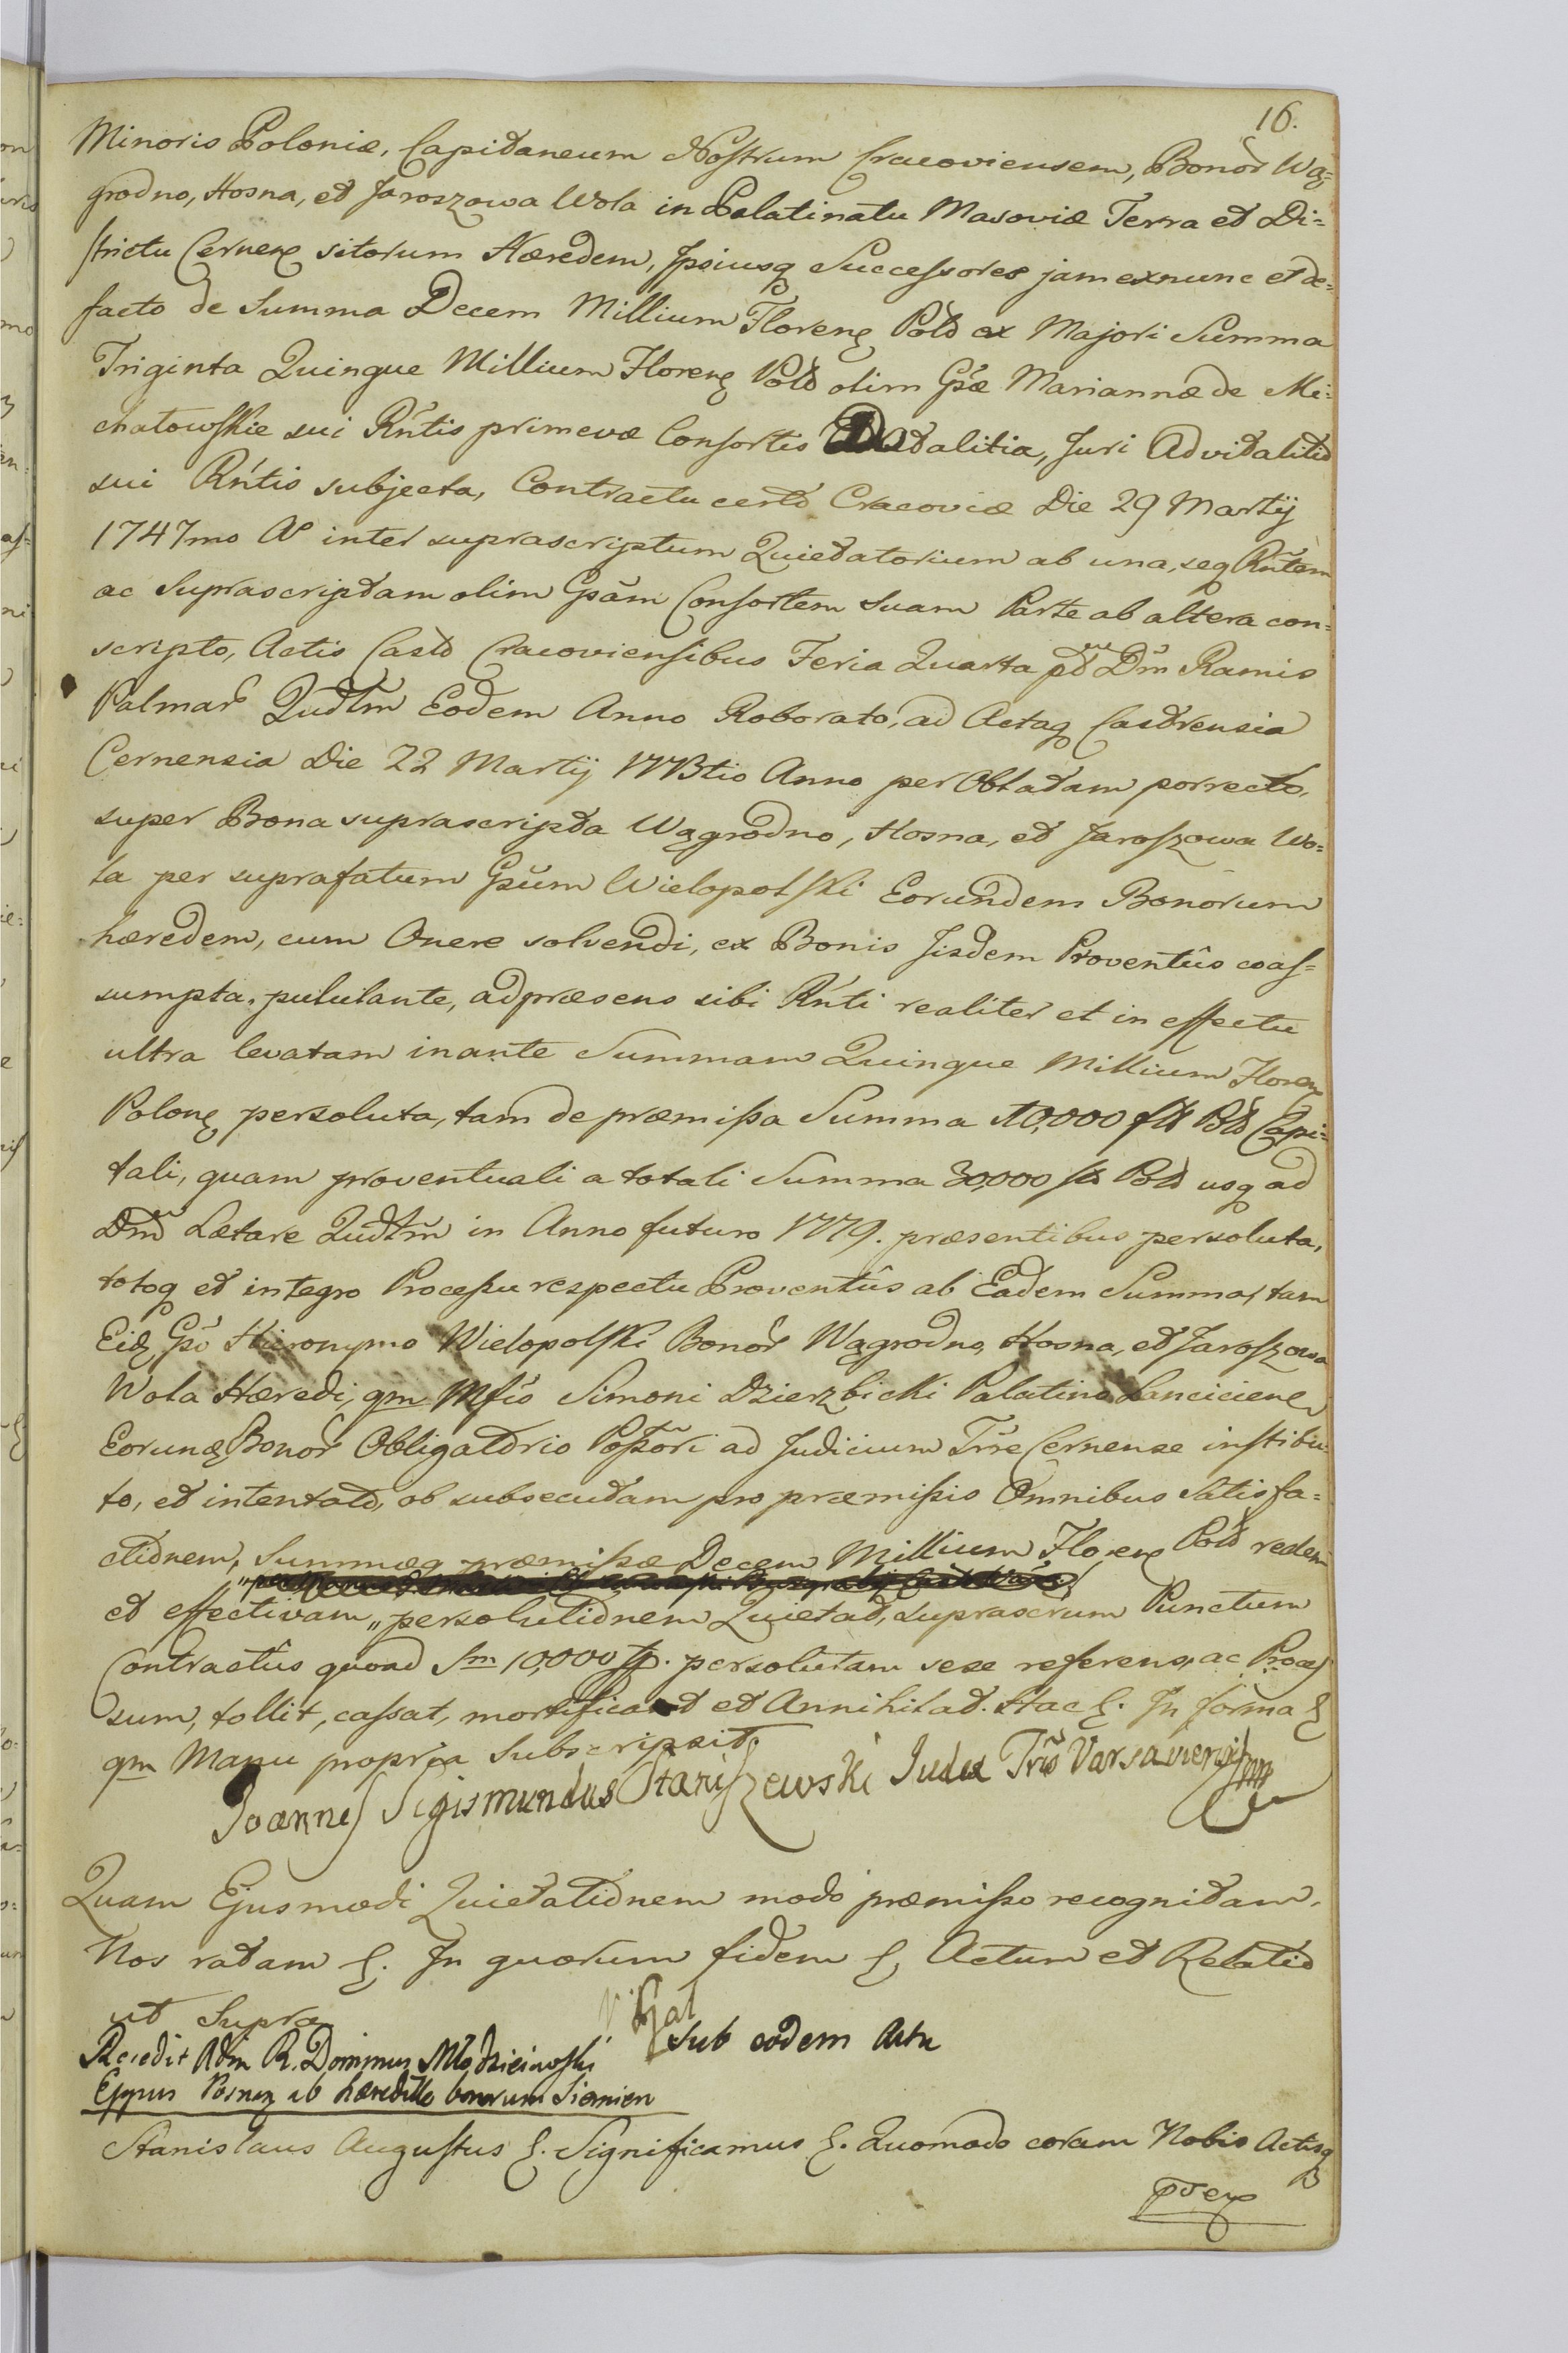 16.
Minoris Poloniæ, Capitaneum Nostrum Cracoviensem, Bonor Wą=
grodno, Hosna, et Jaroszowa Wola in Palatinatu Masoviæ Terra et Di=
strictu Cernen sitorum Hæredem, Ipsiusq Successores jam exnunc et de=
facto de Summa Decem Millium Floren Pold ex Majori Summa
Triginta Quinque Millium Floren Pold olim Gsæ Mariannæ de Mi=
chałowskie sui Rntis primevæ Consortis Dotalitia, Juri Advitalitio
sui Rntis subjecta, Contractu certo Cracoviæ Die 29 Martij
1747mo Ao inter suprascriptum Quietatorium ab una, seq Rntem
ac Suprascriptam olim Gsam Consortem Suam Parte ab altera con=
scripto, Actis Casto Cracoviensibus Feria Quarta pd Dm Ramis
Palmar Qudtm Eodem Anno Roborato, ad Actaq Castrensia
Cernensia Die 22 Martij 1773tio Anno per Oblatam porrecto,
super Bona suprascripta Wągrodno, Hosna, et Jaroszowa Wo=
la per suprafatum Gsum Wielopolski Eorundem Bonorum
hæredem, cum Onere solvendi, ex Bonis Iisdem Proventûs coas=
sumpta, pululante, adpræsens sibi Rnti realiter et in effectu
ultra levatam inante Summam Quinque Millium Floren
Polon persoluta, tam de præmissa Summa 10,000 fl Pold Capi=
tali, quam proventuali a totali Summa 30,000 fl Pold usq ad
Dm Lætare Qudtm in Anno futuro 1779. præsentibus persoluta,
totoq et integro Processu respectu Proventûs ab Eadem Summa, tam
Eid Gso Hieronymo Wielopolski Bonor Wągrodno, Hosna, et Jaroszowa
Wola Hæredi, qm Mfco Simoni Dzierzbicki Palatino Lancicien
Eorund Bonor Obligatorio Possori ad Judicium Trre Cernense institu
to, et intentato, ob subsecutam pro præmissis Omnibus Satisfa=
ctionem, Summæq præmissæ Decem Millium Floren Pold realem
et effectivam „persolutionem Quietat, suprascrum Punctum
Contractûs quoad Sm 10,000 fp. persolutam sese referens, ac Proces
sum, tollit, cassat, mortificat et Annihilat. Hac &. In forma &
qm Manu propria Subscripsit.
Joannes Sigismundus Staniszewski Judex Tris Varsaviensis mpp
Quam Ejusmodi Quietationem modo præmisso recognitam,
Nos ratam &. In quorum fidem &, Actum et Relatio
ut Supra
Sub eodem Actu
Recedit Adm R. Dominus Młodzieiowski
Eppus Posnan ab hæreditte bonorum Siemien
Stanislaus Augustus &. Significamus &. Quomodo coram Nobis Actisq